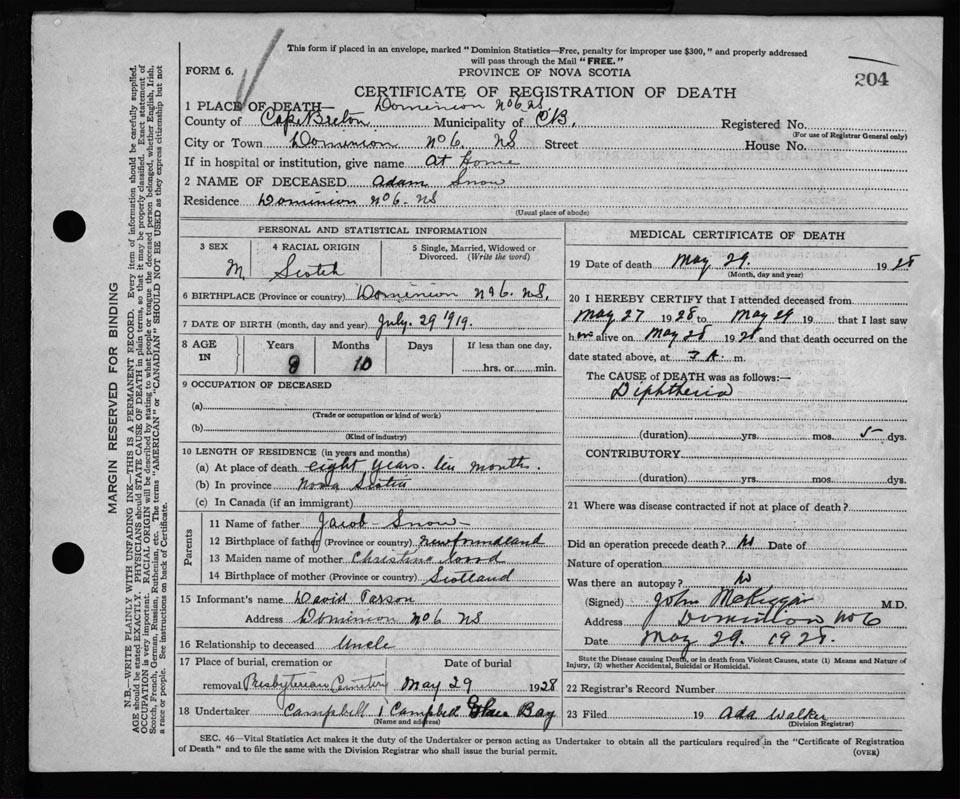 This form if placed in an envelope, marked "Dominion Statistics—Free, penalty for improper use $300," and properly addressed
will pass through the Mail "FREE."
FORM 6.
PROVINCE OF NOVA SCOTIA
204
CERTIFICATE OF REGISTRATION OF DEATH
1 PLACE OF DEATH— Dominion No 6 NS.
County of Cape Breton Municipality of CB. Registered No.
(For use of Registrar General only)
City or Town Dominion No 6. NS Street House No.
If in hospital or institution, give name at Home
2 NAME OF DECEASED Adam Snow
Residence Dominion No 6. NS
(Usual place of abode)
PERSONAL AND STATISTICAL INFORMATION
3 SEX M
4 RACIAL ORIGIN Scotch
5 Single, Married, Widowed or Divorced. (Write the word)
6 BIRTHPLACE (Province or country) Dominion No 6. NS.
7 DATE OF BIRTH (month, day and year) July. 29 1919.
8 AGE IN Years 8 Months 10 Days If less than one day, hrs. or min.
9 OCCUPATION OF DECEASED
(a)
(Trade or occupation or kind of work)
(b)
(Kind of industry)
10 LENGTH OF RESIDENCE (in years and months)
(a) At place of death eight years. ten months.
(b) In province Nova Scotia
(c) In Canada (if an immigrant)
Parents
11 Name of father Jacob Snow
12 Birthplace of father (Province or country) Newfoundland
13 Maiden name of mother Christina
14 Birthplace of mother (Province or country) Scotland
15 Informant's name David Parson
Address Dominion No 6 NS
16 Relationship to deceased Uncle
17 Place of burial, cremation or Date of burial
removal Presbyterian Cemetery May 29 1928
18 Undertaker Campbell & Campbell Glace Bay
(Name and address)
MEDICAL CERTIFICATE OF DEATH
19 Date of death May 29. 1928
(Month, day and year)
20 I HEREBY CERTIFY that I attended deceased from
May 27 1928 to May 29 19 that I last saw
him alive on May 28 1928 and that death occurred on the
date stated above, at 7 A. m.
The CAUSE of DEATH was as follows:—
Diphtheria
(duration) yrs. mos. 5 dys.
CONTRIBUTORY
(duration) yrs. mos. dys.
21 Where was disease contracted if not at place of death?
Did an operation precede death? No Date of
Nature of operation
Was there an autopsy? No
(Signed) John McKiggan M.D.
Address Dominion No 6
Date May 29. 1928.
State the Disease causing Death, or in death from Violent Causes, state (1) Means and Nature of
Injury, (2) whether Accidental, Suicidal or Homicidal.
22 Registrar's Record Number
23 Filed 19 Ada Walker
(Division Registrar)
SEC. 46—Vital Statistics Act makes it the duty of the Undertaker or person acting as Undertaker to obtain all the particulars required in the "Certificate of Registration
of Death" and to file the same with the Division Registrar who shall issue the burial permit.
(OVER)
MARGIN RESERVED FOR BINDING
N.B.—WRITE PLAINLY WITH UNFADING INK—THIS IS A PERMANENT RECORD. Every item of information should be carefully supplied.
AGE should be stated EXACTLY. PHYSICIANS should STATE CAUSE OF DEATH in plain terms, so that it may be properly classified. Exact statement of
OCCUPATION is very important. RACIAL ORIGIN will be described by stating to what people or tongue the deceased person belonged, whether English, Irish,
Scotch, French, German, Russian, Ruthenian, etc. The terms "AMERICAN" or "CANADIAN" SHOULD NOT BE USED as they express citizenship but not
a race or people. See instructions on back of Certificate.